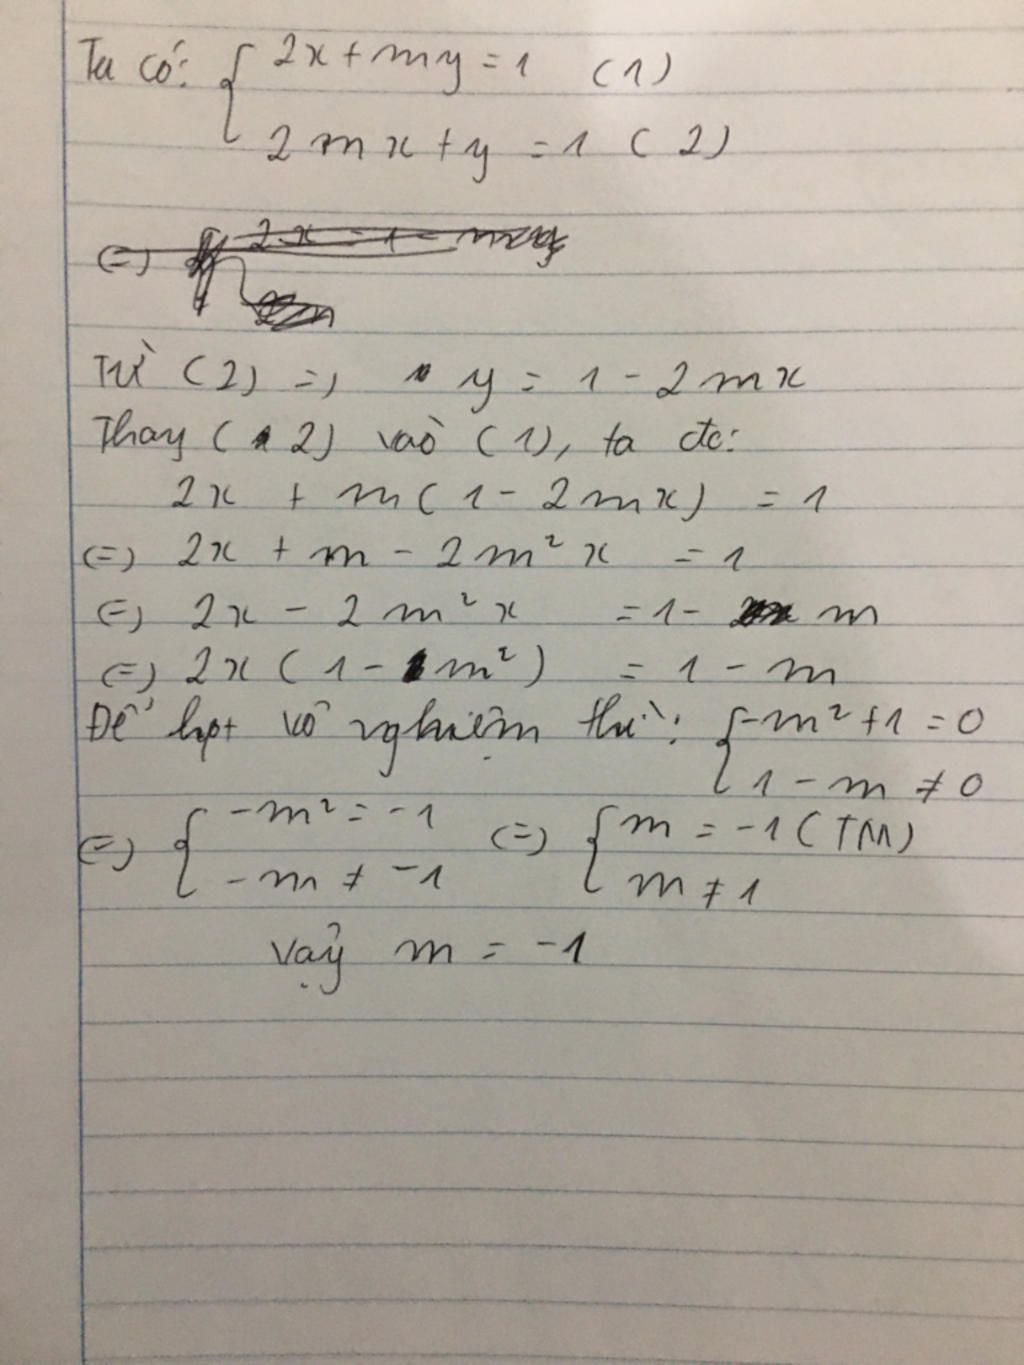 Ta có: { 2x + my = 1 (1)
2mx + y = 1 (2)
(=) 2x = 1 - my
Từ (2) => y = 1 - 2mx
Thay (2) vào (1), ta đc:
2x + m(1 - 2mx) = 1
(=) 2x + m - 2m²x = 1
(=) 2x - 2m²x = 1 - m
(=) 2x (1 - m²) = 1 - m
Để hpt vô nghiệm thì: { -m² + 1 = 0
1 - m ≠ 0
(=) { -m² = -1 (=) { m = -1 (TM)
-m ≠ -1 m ≠ 1
Vậy m = -1